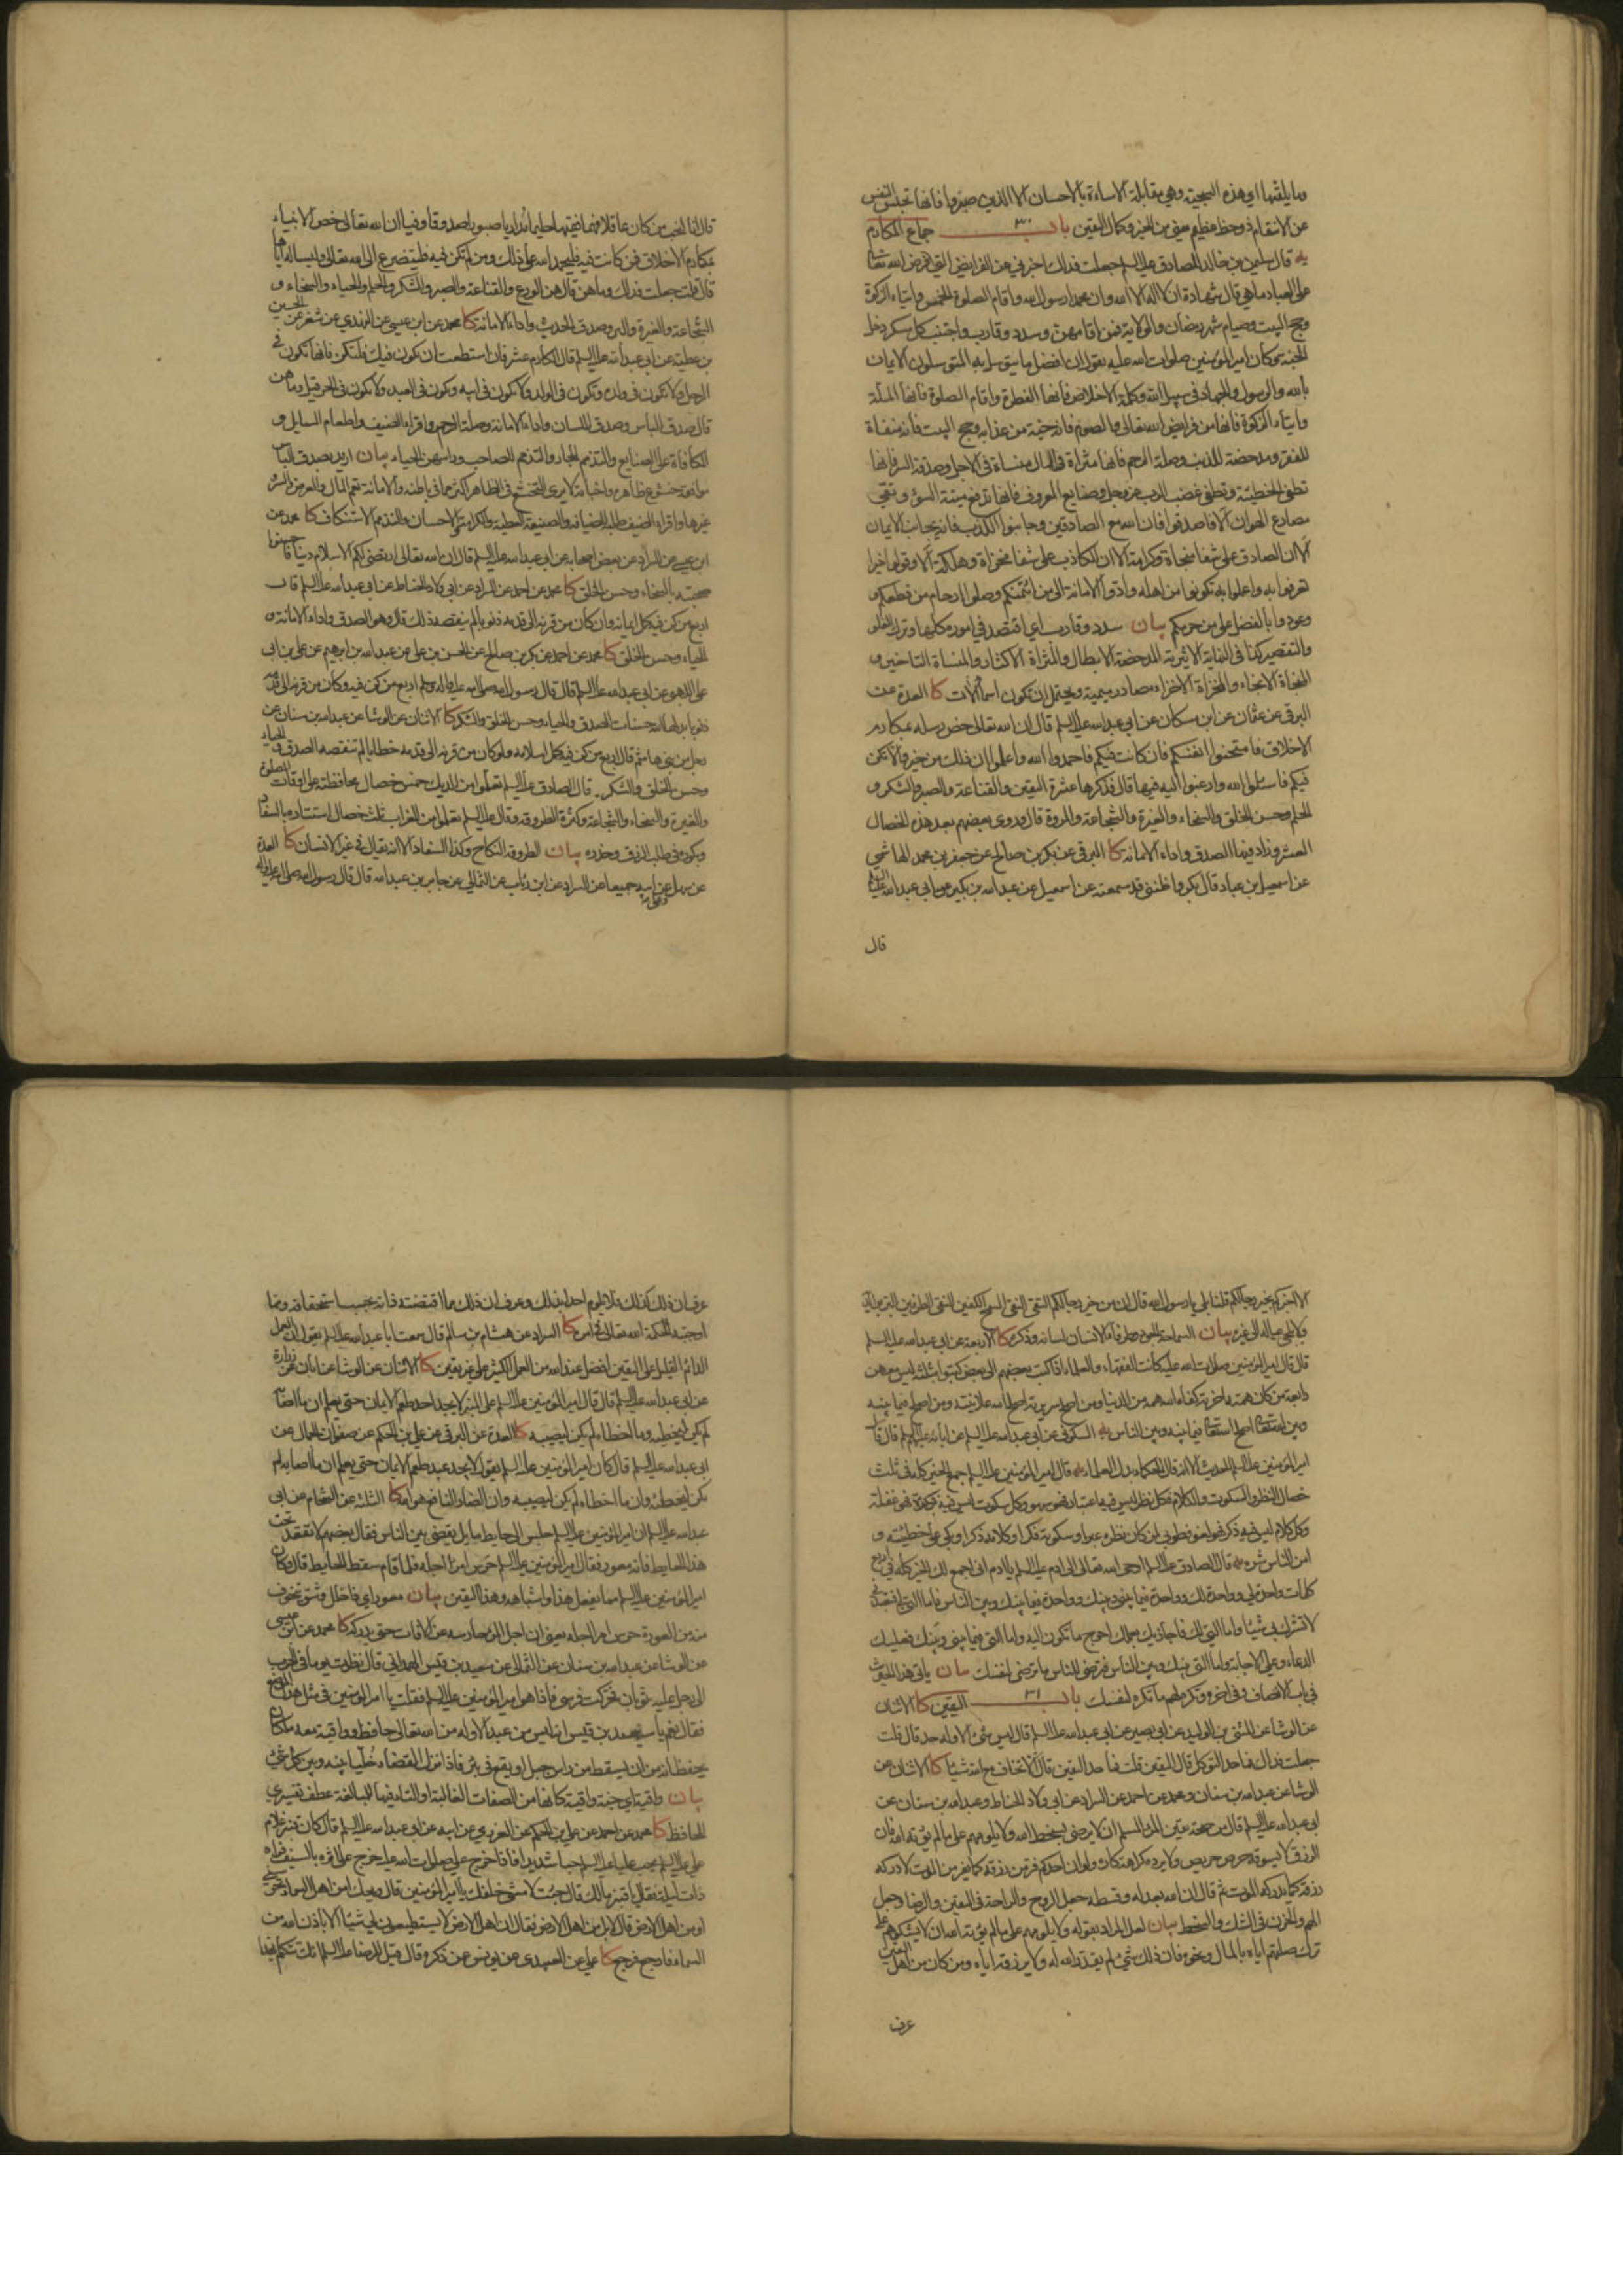 وما يلقيها اي هذه السجية وهي مقابلة الاساءة بالاحسان الا الذين صبروا فانها تحبس النفس
عن الانتقام ذو حظ عظيم يعني من الخير وكمال اليقين باب ٣٠ جماع المكارم
يه قال سليمن بن خالد للصادق عليه السلم جعلت فداك اخبرني عن الفرايض التي فرض الله تعالى
على العباد ما هي قال شهادة ان لا اله الا الله وان محمدا رسول الله واقام الصلوة الخمس وايتاء الزكوة
وحج البيت وصيام شهر رمضان والولاية فمن اقامهن وسدد وقارب واجتنب كل مسكر دخل
الجنة وكان امير المؤمنين صلوات الله عليه يقول ان افضل ما يتوسل به المتوسلون الايمان
بالله والرسول والجهاد في سبيل الله وكلمة الاخلاص فانها الفطرة واقام الصلوة فانها الملة
وايتاء الزكوة فانها من فرايض الله تعالى والصوم فانه جنة من عذابه وحج البيت فانه منفاة
للفقر ومدحضة للذنب وصلة الرحم فانها مثراة في المال منساة في الاجل وصدقة السر فانها
تطفئ الخطيئة وتطفئ غضب الرب عز وجل وصنايع المعروف فانها تدفع ميتة السوء وتقي
مصارع الهوان الا فاصدقوا فان الله مع الصادقين وجانبوا الكذب فانه يجانب الايمان
الا ان الصادق على شفا منجاة وكرامة الا ان الكاذب على شفا مخزاة وهلكة الا وقولوا خيرا
تعرفوا به واعملوا به تكونوا من اهله وادوا الامانة الى من ائتمنكم وصلوا ارحام من قطعكم
وعودوا بالفضل على من حرمكم بيان سدد وقارب اي اقتصد في اموره كلها وترك الغلو
والتقصير كذا في النهاية الاثيرية المدحضة الابطال والمثراة الاكثار والمنساة التاخير و
المنجاة الانجاء والمخزاة الاخزاء مصادر ميمية ويحتمل ان تكون اسماء الات كا العدة عن
البرقي عن عثمان عن ابن مسكان عن ابي عبدالله عليه السلم قال ان الله تعالى خص رسله بمكارم
الاخلاق فامتحنوا انفسكم فان كانت فيكم فاحمدوا الله واعلموا ان ذلك من خير والا تكن
فيكم فاسئلوا الله وارغبوا اليه فيها قال فذكرها عشرة اليقين والقناعة والصبر والشكر و
الحلم وحسن الخلق والسخاء والغيرة والشجاعة والمروة قال وروى بعضهم بعد هذه الخصال
العشر وزاد فيها الصدق واداء الامانة كا البرقي عن بكر بن صالح عن جعفر بن محمد الهاشمي
عن اسمعيل بن عباد قال بكر واظنني قد سمعته عن اسمعيل عن عبدالله بن بكير عن ابي عبدالله عليه السلم
قال
قال انا لنحب من كان عاقلا فهما فقيها حليما مداريا صبورا صدوقا وفيا ان الله تعالى خص الانبياء
بمكارم الاخلاق فمن كانت فيه فليحمد الله على ذلك ومن لم تكن فيه فليتضرع الى الله تعالى وليساله اياها
قال قلت جعلت فداك وما هن قال هن الورع والقناعة والصبر والشكر والحلم والحياء والسخاء و
الشجاعة والغيرة والبر وصدق الحديث واداء الامانة كا محمد عن ابن عيسى عن النهدي عن شعر عن الحسين
بن عطية عن ابي عبدالله عليه السلم قال المكارم عشر فان استطعت ان تكون فيك فلتكن فانها تكون في
الرجل ولا تكون في ولده وتكون في الولد ولا تكون في ابيه وتكون في العبد ولا تكون في الحر قيل وما هن
قال صدق الباس وصدق اللسان واداء الامانة وصلة الرحم واقراء الضيف واطعام السايل و
المكافاة على الصنايع والتذمم للجار والتذمم للصاحب وراسهن الحياء بيان اريد بصدق الباس
موافقة خشوع ظاهره واخباته لا يرى التخشع في الظاهر اكثر مما في باطنه والامانة تعم المال والعرض والسر و
غيرها واقراء الضيف طلبه للضيافة والصنيعة العطية والكرامة والاحسان والتذمم الاستنكاف كا محمد عن
ابن عيسى عن السراد عن بعض اصحابه عن ابي عبدالله عليه السلم قال ان الله تعالى ارتضى لكم الاسلام دينا فاحسنوا
صحبته بالسخاء وحسن الخلق كا محمد عن احمد عن السراد عن ابي ولاد الحناط عن ابي عبدالله عليه السلم قال
اربع من كن فيه كمل ايمانه وان كان من قرنه الى قدمه ذنوبا لم ينقصه ذلك قال وهو الصدق واداء الامانة و
الحياء وحسن الخلق كا محمد عن احمد عن بكر بن صالح عن الحسن بن علي عن عبدالله بن ابراهيم عن علي بن ابي
علي اللهبي عن ابي عبدالله عليه السلم قال قال رسول الله صلى الله عليه واله وسلم اربع من كن فيه وكان من قرنه الى قدمه
ذنوبا بدلها الله حسنات الصدق والحياء وحسن الخلق والشكر كا الاثنان عن الوشا عن عبدالله بن سنان عن
رجل من بني هاشم قال اربع من كن فيه كمل اسلامه ولو كان من قرنه الى قدمه خطايا لم تنقصه الصدق والحياء
وحسن الخلق والشكر يه قال الصادق عليه السلم تعلموا من الديك خمس خصال محافظته على اوقات الصلوة
والغيرة والسخاء والشجاعة وكثرة الطروقة وقال عليه السلم تعلموا من الغراب ثلث خصال استتاره بالسفاد
وبكوره في طلب الرزق وحذره بيان الطروقة النكاح وكذا السفاد الا انه يقال في غير الانسان كا العدة
عن سهل وعلي عن ابيه جميعا عن السراد عن ابن رئاب عن الثمالي عن جابر بن عبدالله قال قال رسول الله صلى الله عليه واله
الا اخبركم بخير رجالكم قلنا بلى يا رسول الله قال ان من خير رجالكم التقي النقي السمح الكفين النقي الطرفين البر بوالديه
ولا يلجئ عياله الى غيره بيان السماحة الجود وطرفا الانسان لسانه وذكره كا الاربعة عن ابي عبدالله عليه السلم
قال قال امير المؤمنين صلوات الله عليه كانت الفقهاء والعلماء اذا كتب بعضهم الى بعض كتبوا بثلثة ليس معهن
رابعة من كان همته اخرته كفاه الله همه من الدنيا ومن اصلح سريرته اصلح الله علانيته ومن اصلح فيما بينه
وبين الله تعالى اصلح الله تعالى فيما بينه وبين الناس يه السكوني عن ابي عبدالله عليه السلم عن ابائه عليهم السلم قال قال
امير المؤمنين عليه السلم الحديث الا انه قال الحكماء بدل العلماء يه قال امير المؤمنين عليه السلم جمع الخير كله في ثلث
خصال النظر والسكوت والكلام فكل نظر ليس فيه اعتبار فهو سهو وكل سكوت ليس فيه فكرة فهو غفلة
وكل كلام ليس فيه ذكر فهو لغو فطوبى لمن كان نظره عبرا وسكوته فكرا وكلامه ذكرا وبكى على خطيئته و
امن الناس شره يه قال الصادق عليه السلم اوحى الله تعالى الى ادم عليه السلم يا ادم اني اجمع لك الخير كله في اربع
كلمات واحدة لي وواحدة لك وواحدة فيما بيني وبينك وواحدة فيما بينك وبين الناس فاما التي لي فتعبدني
لا تشرك بي شيئا واما التي لك فاجازيك بعملك احوج ما تكون اليه واما التي فيما بيني وبينك فعليك
الدعاء وعلي الاجابة واما التي بينك وبين الناس فترضى للناس ما ترضى لنفسك بيان ياتي هذا الحديث
في باب الانصاف وفي اخره وتكره لهم ما تكره لنفسك باب ٣١ اليقين كا الاثنان
عن الوشا عن المثنى بن الوليد عن ابي بصير عن ابي عبدالله عليه السلم قال ليس شئ الا وله حد قال قلت
جعلت فداك فما حد التوكل قال اليقين قلت فما حد اليقين قال الا تخاف مع الله شيئا كا الاثنان عن
الوشا عن عبدالله بن سنان ومحمد عن احمد عن السراد عن ابي ولاد الحناط وعبدالله بن سنان عن
ابي عبدالله عليه السلم قال من صحة يقين المرء المسلم ان لا يرضي الناس بسخط الله ولا يلومهم على ما لم يؤته الله فان
الرزق لا يسوقه حرص حريص ولا يرده كراهة كاره ولو ان احدكم فر من رزقه كما يفر من الموت لادركه
رزقه كما يدركه الموت ثم قال ان الله بعدله وقسطه جعل الروح والراحة في اليقين والرضا وجعل
الهم والحزن في الشك والسخط بيان لعل المراد بقوله ولا يلومهم على ما لم يؤته الله ان لا يشكوهم على
ترك صلتهم اياه بالمال ونحوه فان ذلك شئ لم يقدره الله له ولا يرزقه اياه ومن كان من اهل اليقين
عرف
عرف ان ذلك كذلك فلا يلوم احدا بذلك وعرف ان ذلك مما اقتضته ذاته بحسب استحقاقه ومما
اوجبته حكمة الله تعالى في امره كا السراد عن هشام بن سالم قال سمعت ابا عبدالله عليه السلم يقول ان العمل
الدائم القليل على اليقين افضل عند الله من العمل الكثير على غير يقين كا الاثنان عن الوشا عن ابان عن زرارة
عن ابي عبدالله عليه السلم قال قال امير المؤمنين عليه السلم على المنبر لا يجد احد طعم الايمان حتى يعلم ان ما اصابه
لم يكن ليخطئه وما اخطاه لم يكن ليصيبه كا العدة عن البرقي عن علي بن الحكم عن صفوان الجمال عن
ابي عبدالله عليه السلم قال كان امير المؤمنين عليه السلم يقول لا يجد عبد طعم الايمان حتى يعلم ان ما اصابه لم
يكن ليخطئه وان ما اخطاه لم يكن ليصيبه وان الضار النافع هو الله كا الثلثة عن الشحام عن ابي
عبدالله عليه السلم ان امير المؤمنين عليه السلم جلس الى حايط مايل يقضي بين الناس فقال بعضهم لا تقعد تحت
هذا الحايط فانه معور فقال امير المؤمنين عليه السلم حرس امرءا اجله فلما قام سقط الحايط قال وكان
امير المؤمنين عليه السلم مما يفعل هذا واشباهه وهذا اليقين بيان معور اي ذا خلل وشق يتخوف
منه من العورة حرس امرءا اجله يعني ان اجل المرء حارسه عن الافات حتى يدركه كا محمد عن ابن عيسى
عن الوشا عن عبدالله بن سنان عن الثمالي عن سعيد بن قيس الهمداني قال نظرت يوما في الحرب
الى رجل عليه ثوبان فحركت فرسي فاذا هو امير المؤمنين عليه السلم فقلت يا امير المؤمنين في مثل هذا الموضع
فقال نعم يا سعيد بن قيس انه ليس من عبد الا وله من الله تعالى حافظ وواقية معه ملكان
يحفظانه من ان يسقط من راس جبل او يقع في بئر فاذا نزل القضاء خليا بينه وبين كل شئ
بيان واقية اي جنة واقية كانها من الصفات الغالبة او التاء فيها للمبالغة عطف تفسيري
للحافظ كا محمد عن احمد عن علي بن الحكم عن العرزمي عن ابيه عن ابي عبدالله عليه السلم قال كان قنبر غلام
علي عليه السلم يحب عليا عليه السلم حبا شديدا فاذا خرج علي صلوات الله عليه خرج على اثره بالسيف فراه
ذات ليلة فقال يا قنبر ما لك قال جئت لامشي خلفك يا امير المؤمنين قال ويحك امن اهل السماء تحرسني
او من اهل الارض قال لا بل من اهل الارض فقال ان اهل الارض لا يستطيعون لي شيئا الا باذن الله من
السماء فارجع فرجع كا علي عن العبيدي عن يونس عن ذكره قال قيل للرضا عليه السلم انك تتكلم بهذا